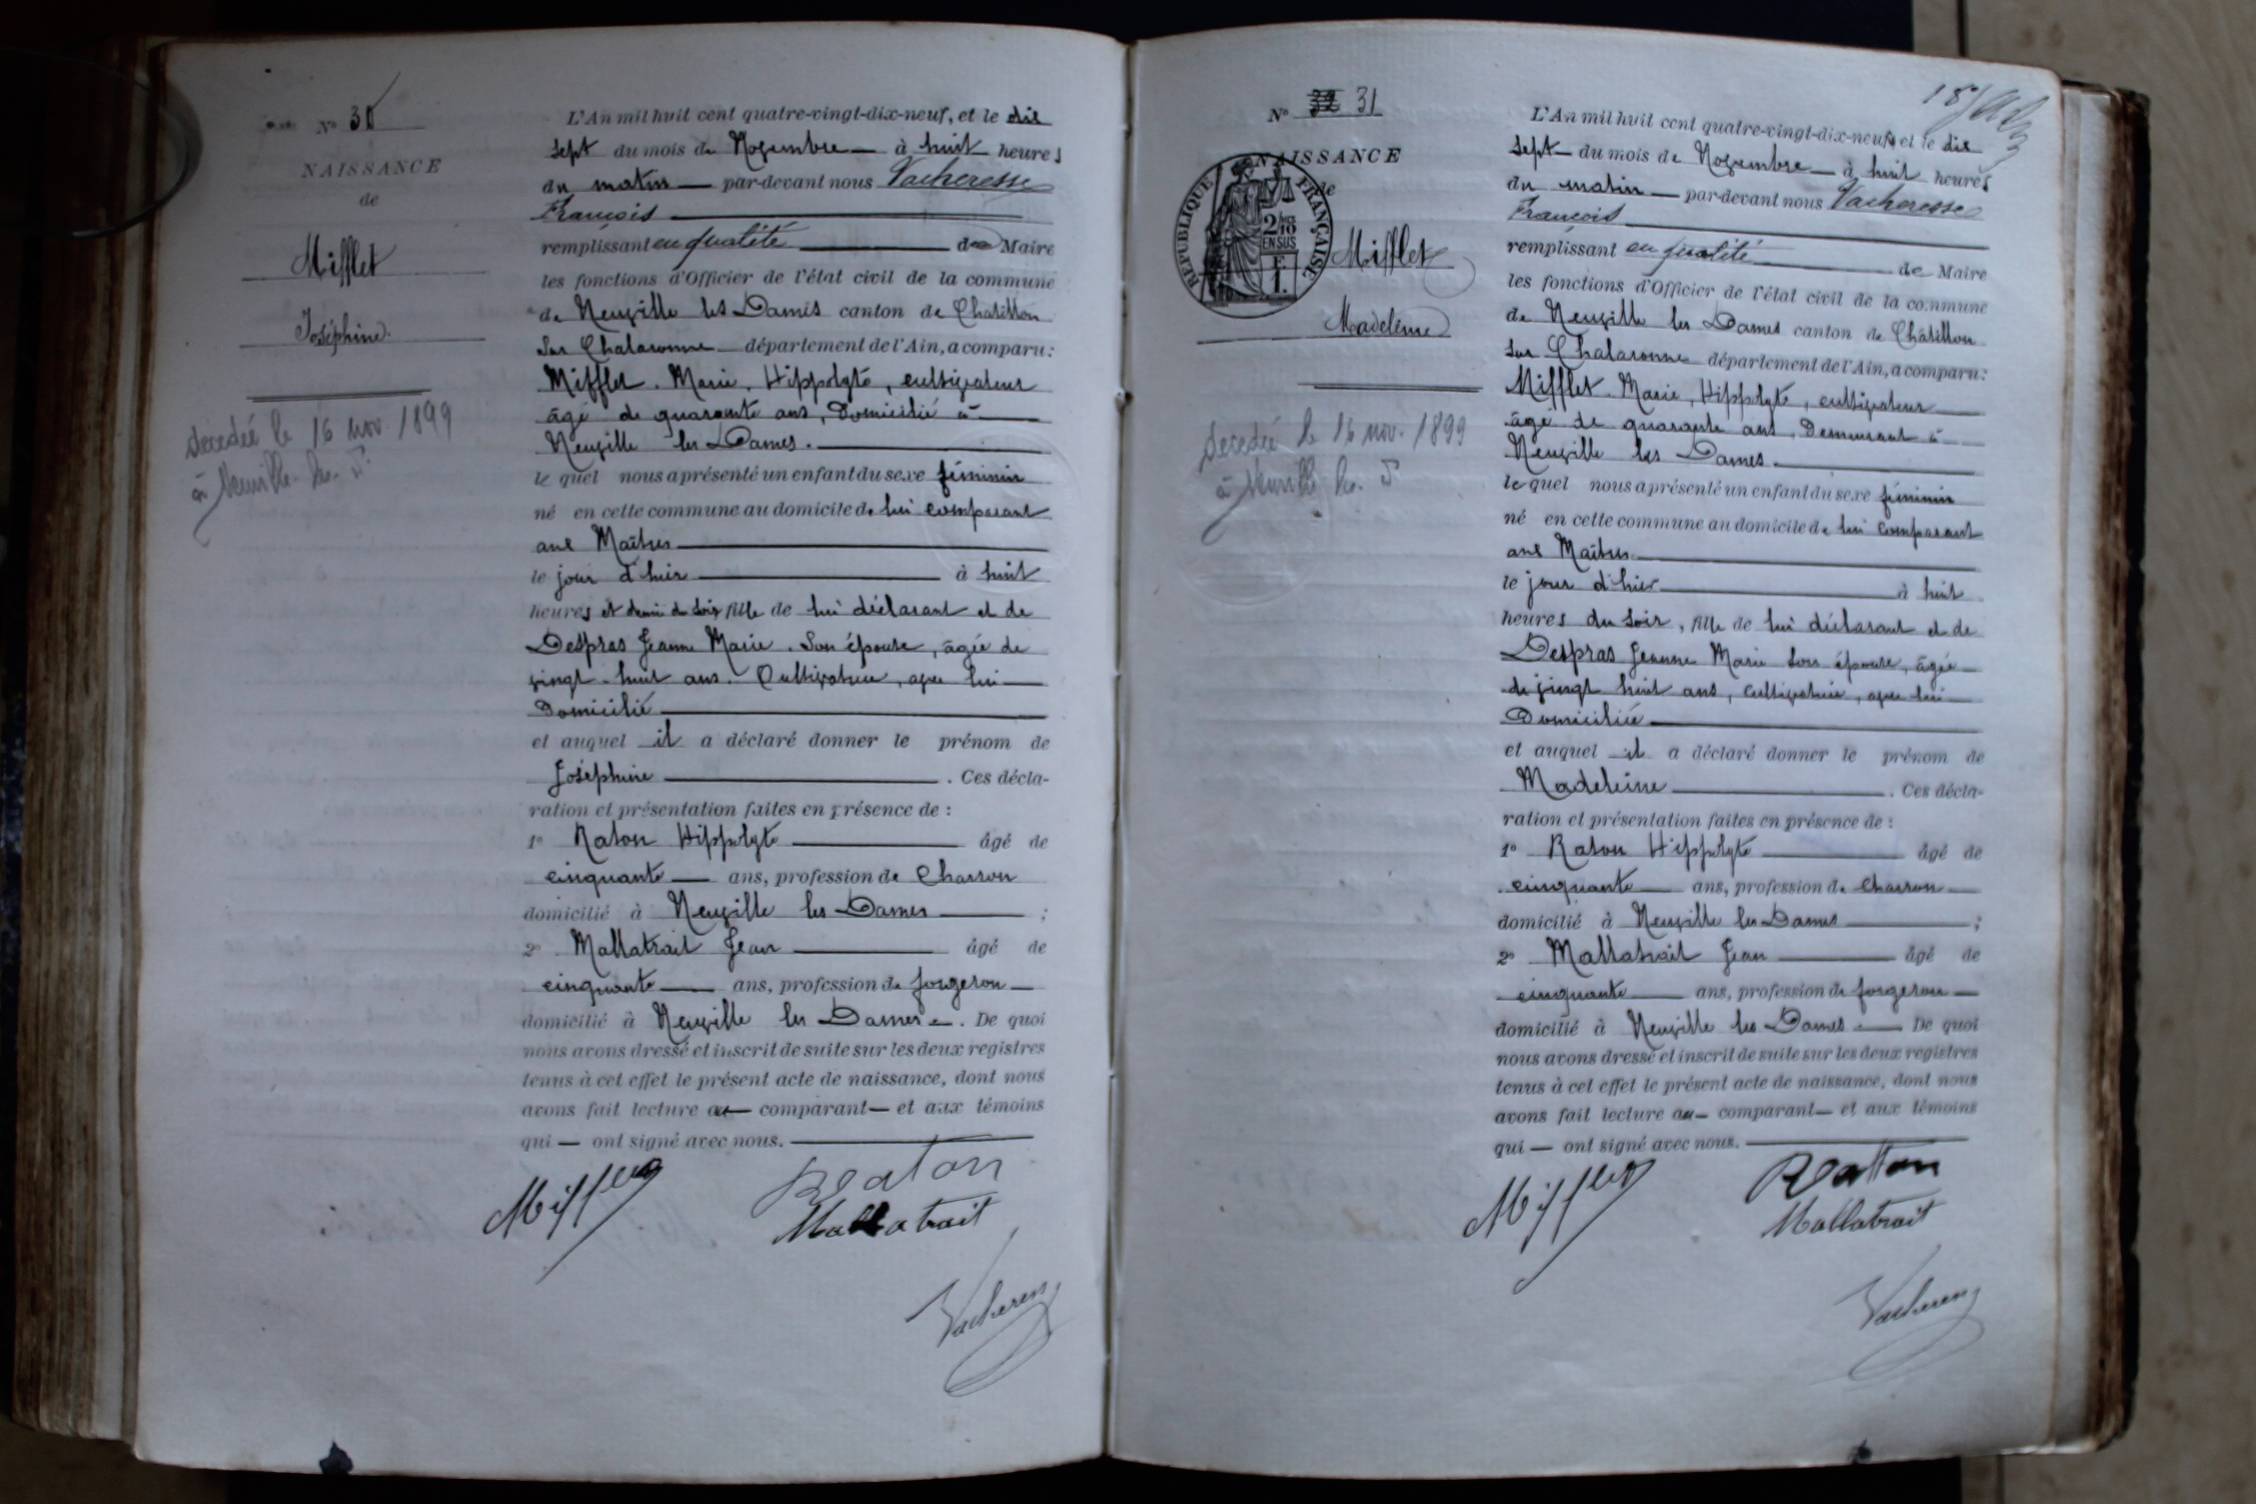 N° 30
NAISSANCE
de
Mifflet
Joséphine
décédée le 16 nov. 1899
à Neuville les D.
L'An mil huit cent quatre-vingt-dix-neuf, et le dix
sept du mois de Novembre à huit heures
du matin par-devant nous Vacheresse
François
remplissant en qualité de Maire
les fonctions d'Officier de l'état civil de la commune
de Neuville les Dames canton de Chatillon
sur Chalaronne département de l'Ain, a comparu:
Mifflet Marie, Hippolyte, cultivateur
âgé de quarante ans, Domicilié à
Neuville les Dames.
le quel nous a présenté un enfant du sexe féminin
né en cette commune au domicile de lui comparant
aux Maîtres
le jour d'hier à huit
heures et demi du soir fille de lui déclarant et de
Despras Jeanne Marie. Son épouse, âgée de
vingt-huit ans. Cultivatrice, avec lui
Domicilié
et auquel il a déclaré donner le prénom de
Joséphine. Ces décla-
ration et présentation faites en présence de :
1° Raton Hippolyte âgé de
cinquante ans, profession de Charron
domicilié à Neuville les Dames ;
2° Mallatrait Jean âgé de
cinquante ans, profession de forgeron
domicilié à Neuville les Dames. De quoi
nous avons dressé et inscrit de suite sur les deux registres
tenus à cet effet le présent acte de naissance, dont nous
avons fait lecture au comparant et aux témoins
qui ont signé avec nous.
Mifflet Raton
Mallatrait
Vacheresse
187
N° 32 31
NAISSANCE
de
RÉPUBLIQUE FRANÇAISE
2/10 EN SUS
F. 1.
Mifflet
Madeleine
décédée le 16 nov. 1899
à Neuville les D.
L'An mil huit cent quatre-vingt-dix-neuf, et le dix
sept du mois de Novembre à huit heures
du matin par-devant nous Vacheresse
François
remplissant en qualité de Maire
les fonctions d'Officier de l'état civil de la commune
de Neuville les Dames canton de Châtillon
sur Chalaronne département de l'Ain, a comparu:
Mifflet Marie, Hippolyte, cultivateur
âgé de quarante ans, Demeurant à
Neuville les Dames.
le quel nous a présenté un enfant du sexe féminin
né en cette commune au domicile de lui comparant
aux Maîtres
le jour d'hier à huit
heures du soir, fille de lui déclarant et de
Despras Jeanne Marie son épouse, âgée
de vingt huit ans, cultivatrice, avec lui
Domiciliée
et auquel il a déclaré donner le prénom de
Madeleine. Ces décla-
ration et présentation faites en présence de :
1° Raton Hippolyte âgé de
cinquante ans, profession de charron
domicilié à Neuville les Dames ;
2° Mallatrait Jean âgé de
cinquante ans, profession de forgeron
domicilié à Neuville les Dames. De quoi
nous avons dressé et inscrit de suite sur les deux registres
tenus à cet effet le présent acte de naissance, dont nous
avons fait lecture au comparant et aux témoins
qui ont signé avec nous.
Mifflet Ratton
Mallatrait
Vacheresse